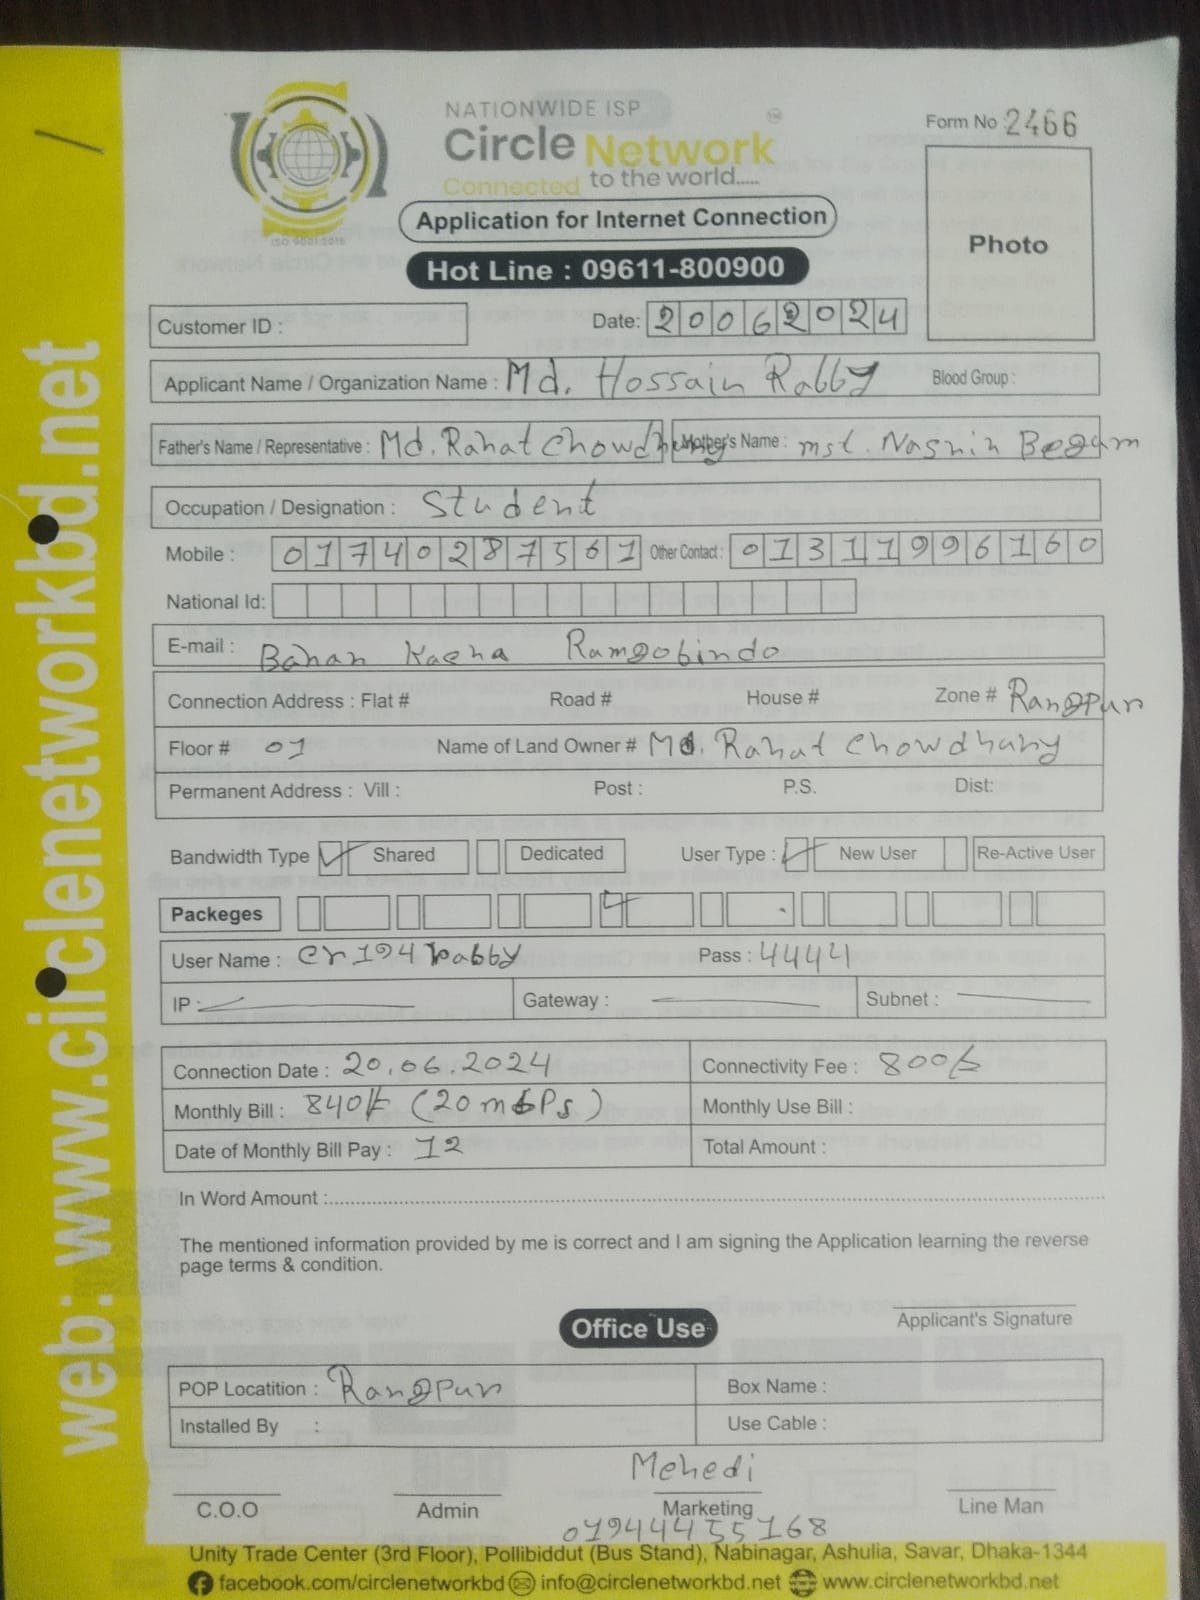 web: www.circlenetworkbd.net
NATIONWIDE ISP
Circle Network
Connected to the world.....
ISO 9001:2015
Form No 2466
Application for Internet Connection
Photo
Hot Line : 09611-800900
Customer ID :
Date: 20062024
Applicant Name / Organization Name : Md. Hossain Rabby Blood Group :
Father's Name / Representative : Md. Rahat Chowdhury Mother's Name : mst. Nasrin Begum
Occupation / Designation : Student
Mobile : 01740287561 Other Contact : 01311996160
National Id:
E-mail : Bahar Kacha Ramgobindo
Connection Address : Flat # Road # House # Zone # Rangpur
Floor # 01 Name of Land Owner # Md. Rahat Chowdhury
Permanent Address : Vill : Post : P.S. Dist:
Bandwidth Type Shared Dedicated User Type : New User Re-Active User
Packeges
User Name : cr194rabby Pass : 4444
IP : Gateway : Subnet :
Connection Date : 20.06.2024 Connectivity Fee : 800/-
Monthly Bill : 840/- (20 mbps) Monthly Use Bill :
Date of Monthly Bill Pay : 12 Total Amount :
In Word Amount :
The mentioned information provided by me is correct and I am signing the Application learning the reverse
page terms & condition.
Applicant's Signature
Office Use
POP Locatition : Rangpur Box Name :
Installed By : Use Cable :
Mehedi
C.O.O Admin Marketing Line Man
01944455168
Unity Trade Center (3rd Floor), Pollibiddut (Bus Stand), Nabinagar, Ashulia, Savar, Dhaka-1344
facebook.com/circlenetworkbd info@circlenetworkbd.net www.circlenetworkbd.net